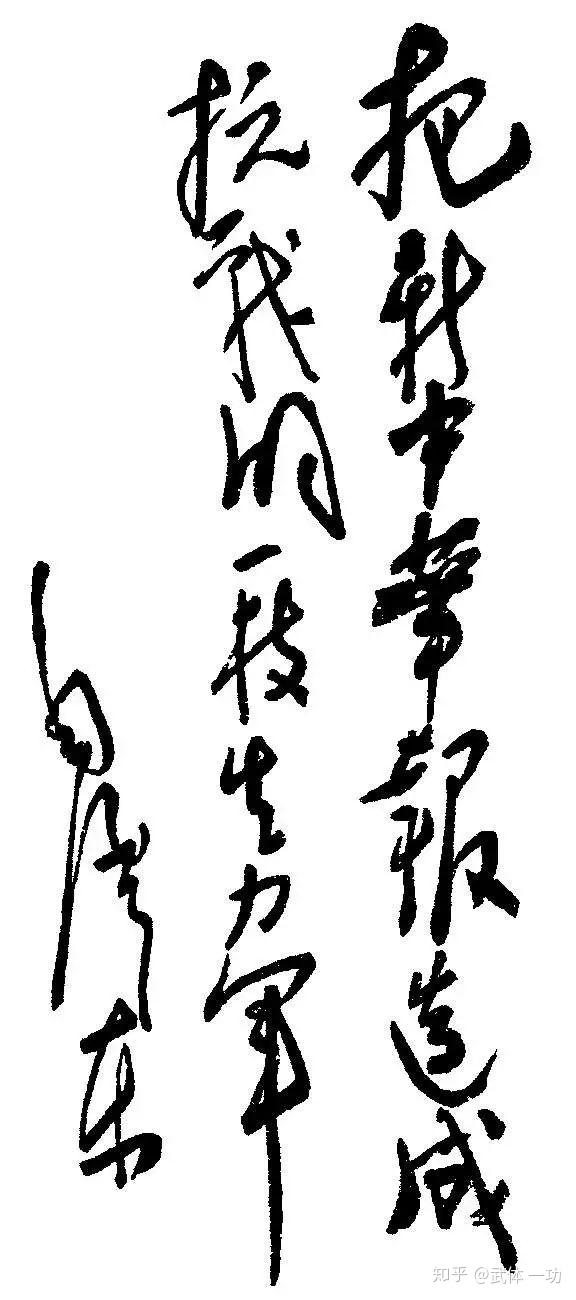 把新中華報造成
抗战的一枝生力军
毛泽东
知乎 @武体一功